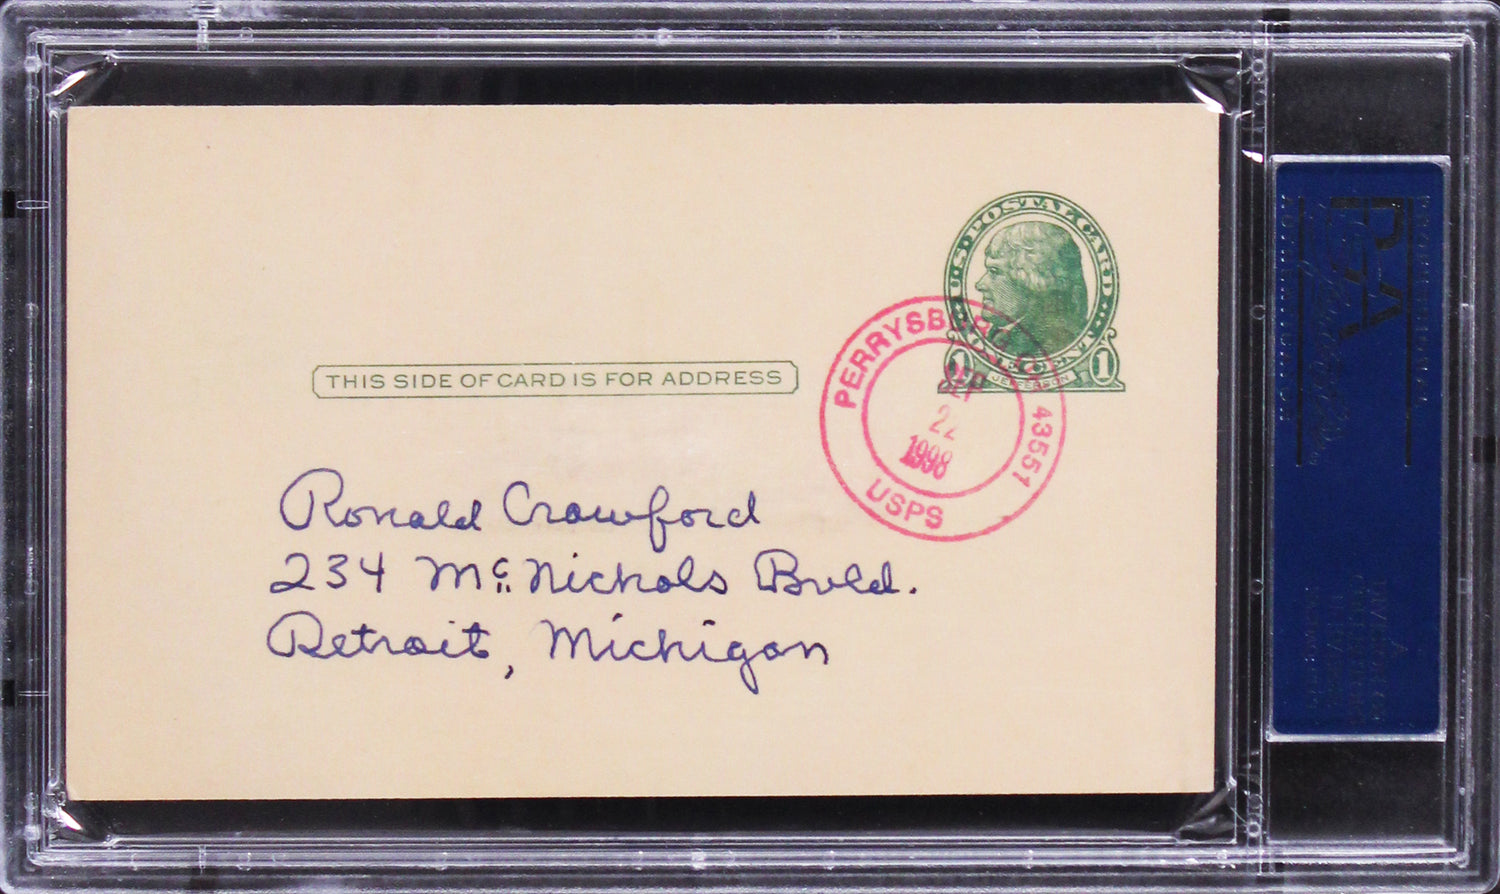 U.S. POSTAL CARD
1 ONE CENT 1
JEFFERSON
THIS SIDE OF CARD IS FOR ADDRESS
PERRYSBURG 43551
SEP
22
1998
USPS
Ronald Crawford
234 Mc Nichols Bvld.
Detroit, Michigan
PSA